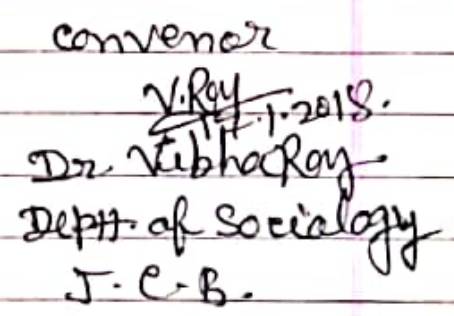 convenor
V.Roy
17.1.2018.
Dr. Vibha Roy.
Deptt. of Socialogy
J.C.B.